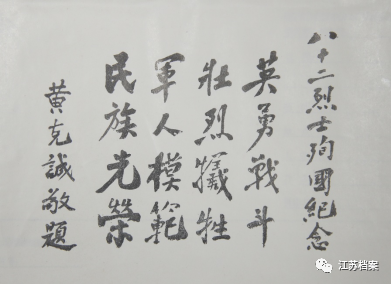 八十二烈士殉國紀念
英勇戰斗
壯烈犧牲
軍人模範
民族光榮
黃克誠敬題
江苏档案